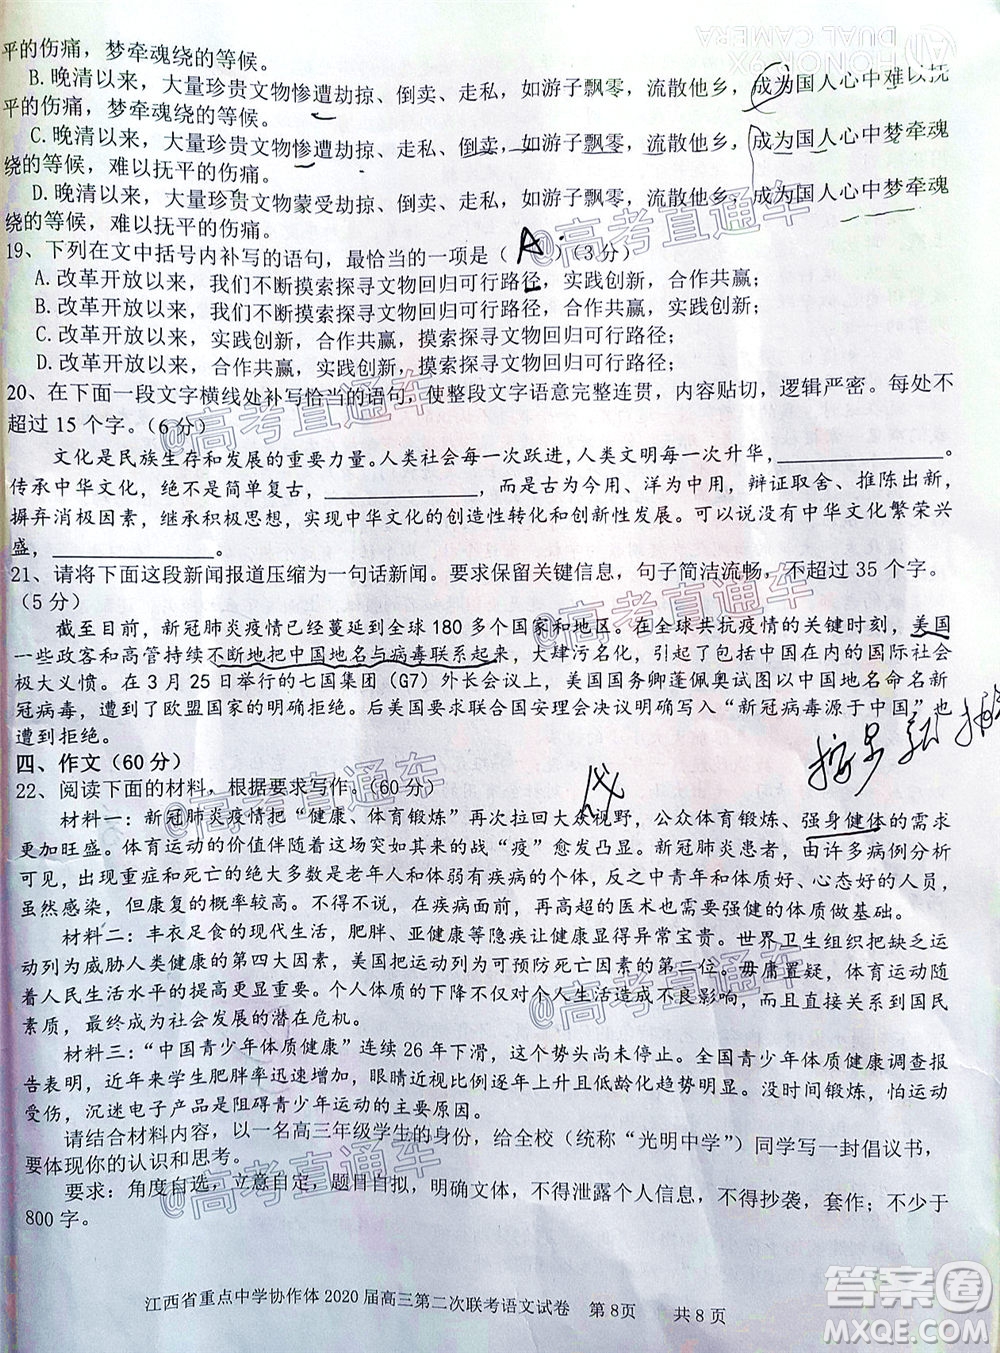 平的伤痛，梦牵魂绕的等候。
B. 晚清以来，大量珍贵文物惨遭劫掠、倒卖、走私，如游子飘零，流散他乡，成为国人心中难以抚
平的伤痛，梦牵魂绕的等候。
C. 晚清以来，大量珍贵文物惨遭劫掠、倒卖、走私，如游子飘零，流散他乡，成为国人心中梦牵魂
绕的等候，难以抚平的伤痛。
D. 晚清以来，大量珍贵文物蒙受劫掠、倒卖、走私，如游子飘零，流散他乡，成为国人心中梦牵魂
绕的等候，难以抚平的伤痛。
19、下列在文中括号内补写的语句，最恰当的一项是（ A ）（3分）
A. 改革开放以来，我们不断摸索探寻文物回归可行路径，实践创新，合作共赢；
B. 改革开放以来，我们不断摸索探寻文物回归可行路径，合作共赢，实践创新；
C. 改革开放以来，我们不断实践创新，合作共赢，摸索探寻文物回归可行路径；
D. 改革开放以来，我们不断合作共赢，实践创新，摸索探寻文物回归可行路径；
20、在下面一段文字横线处补写恰当的语句，使整段文字语意完整连贯，内容贴切，逻辑严密。每处
不超过 15 个字。（6 分）
文化是民族生存和发展的重要力量。人类社会每一次跃进，人类文明每一次升华，____________。
传承中华文化，绝不是简单复古，____________，而是古为今用、洋为中用，辩证取舍、推陈出新，
摒弃消极因素，继承积极思想，实现中华文化的创造性转化和创新性发展。可以说没有中华文化繁荣兴
盛，____________。
21、请将下面这段新闻报道压缩为一句话新闻。要求保留关键信息，句子简洁流畅，不超过 35 个字。
（5 分）
截至目前，新冠肺炎疫情已经蔓延到全球 180 多个国家和地区。在全球共抗疫情的关键时刻，美国
一些政客和高管持续不断地把中国地名与病毒联系起来，大肆污名化，引起了包括中国在内的国际社会
极大义愤。在 3 月 25 日举行的七国集团（G7）外长会议上，美国国务卿蓬佩奥试图以中国地名命名新
冠病毒，遭到了欧盟国家的明确拒绝。后美国要求联合国安理会决议明确写入“新冠病毒源于中国”也
遭到拒绝。
四、作文（60 分）
22、阅读下面的材料，根据要求写作。（60 分）
材料一：新冠肺炎疫情把“健康、体育锻炼”再次拉回大众视野，公众体育锻炼、强身健体的需求
更加旺盛。体育运动的价值伴随着这场突如其来的战“疫”愈发凸显。新冠肺炎患者，由许多病例分析
可见，出现重症和死亡的绝大多数是有基础病和体弱有疾病的人群，而中青年和体质较好、心态好的人员，
虽然感染，但康复的概率较高。不得不说，在疾病面前，再高超的医术也需要强健的体质做基础。
材料二：丰衣足食的现代生活，肥胖、亚健康等隐疾让健康显得异常宝贵。世界卫生组织把缺乏运
动列为威胁人类健康的第四大因素，美国把运动列为可预防死亡因素的第二位。毋庸置疑，体育运动随
着人民生活水平的提高更显重要。个人体质的下降不仅对个人生活造成不良影响，而且直接作用于国民
素质，最终成为社会发展的潜在危机。
材料三：“中国青少年体质健康”连续 26 年下滑，这个势头尚未停止。全国青少年体质健康调查报
告表明，近年来学生肥胖率和近视比例逐年上升且低龄化趋势明显。没时间锻炼，怕运动
受伤，沉迷电子产品是阻碍青少年运动的主要原因。
请结合材料内容，以一名高三年级学生的身份，给全校（统称“光明中学”）同学写一封倡议书，
要体现你的认识和思考。
要求：角度自选，立意自定，题目自拟，明确文体，不得泄露个人信息，不得抄袭，套作；不少于
800 字。
江西省重点中学协作体 2020 届高三第二次联考语文试卷 第 8页 共 8 页
@高考直通车
@高考直通车
@高考直通车
@高考直通车
@高考直通车
@高考直通车
@高考直通车
DUAL CAMERA
答案圈
MXQE.COM